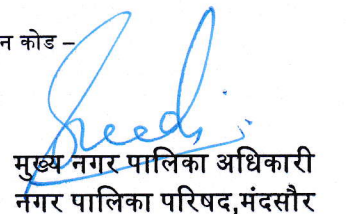 न कोड –
मुख्य नगर पालिका अधिकारी
नगर पालिका परिषद,मंदसौर